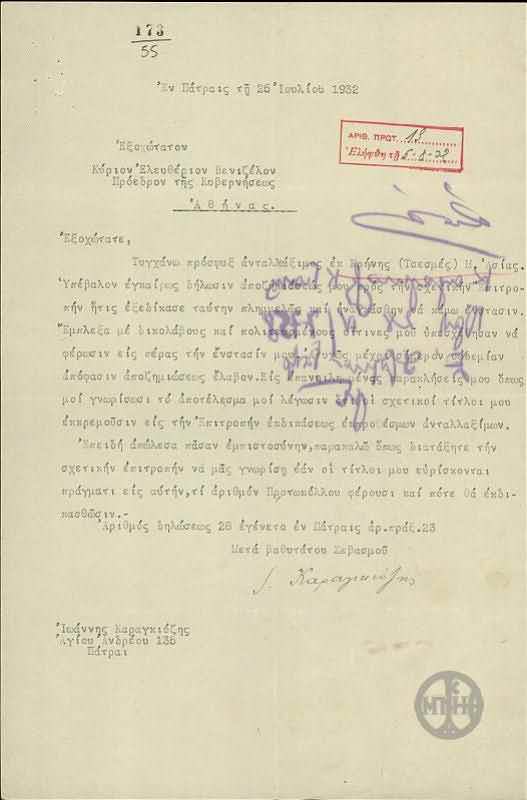 173
55
Ἐν Πάτραις τῇ 25 Ἰουλίου 1932
ΑΡΙΘ. ΠΡΩΤ. 13
Ἐλήφθη τῇ
Ἐξοχώτατον
Κύριον Ἐλευθέριον Βενιζέλον
Πρόεδρον τῆς Κυβερνήσεως
Ἀθήνας.
Ἐξοχώτατε,
Τυγχάνω πρόσφυξ ἀνταλλάξιμος ἐκ Κρήνης (Τσεσμές) Μ. Ἀσίας.
Ὑπέβαλον ἐγκαίρως δήλωσιν ἀποζημιώσεώς μου πρός τήν σχετικήν ἐπιτρο-
πήν ἥτις ἐξεδίκασε ταύτην πλημμελῶς καί ἠναγκάσθην νά κάμω ἔνστασιν.
Ἔμπλεξα μέ δικολάβους καί πολιτευομένους οἵτινες μου ὑπεσχήθησαν νά
φέρωσιν εἰς πέρας τήν ἔνστασίν μου μέχρι σήμερον οὐδεμίαν
ἀπόφασιν ἀποζημιώσεως ἔλαβον. Εἰς ἐπανειλημένας παρακλήσεις μου ὅπως
μοί γνωρίσωσι τό ἀποτέλεσμα μοί λέγωσιν ὅτι οἱ σχετικοί τίτλοι μου
ἐκκρεμοῦσιν εἰς τήν Ἐπιτροπήν ἐκδικάσεως ἐκπροθέσμων ἀνταλλαξίμων.
Ἐπειδή ἀπώλεσα πᾶσαν ἐμπιστοσύνην, παρακαλῶ ὅπως διατάξητε τήν
σχετικήν ἐπιτροπήν νά μᾶς γνωρίσῃ ἐάν οἱ τίτλοι μου εὑρίσκονται
πράγματι εἰς αὐτήν, τί ἀριθμόν Πρωτοκόλλου φέρουσι καί πότε θά ἐκδι-
κασθῶσιν.-
Ἀριθμός δηλώσεως 28 ἐγένετο ἐν Πάτραις ἀρ. πράξ. 23
Μετά βαθυτάτου Σεβασμοῦ
Ι. Καραγκιόζης
Ἰωάννης Καραγκιόζης
Ἁγίου Ἀνδρέου 135
Πάτραι